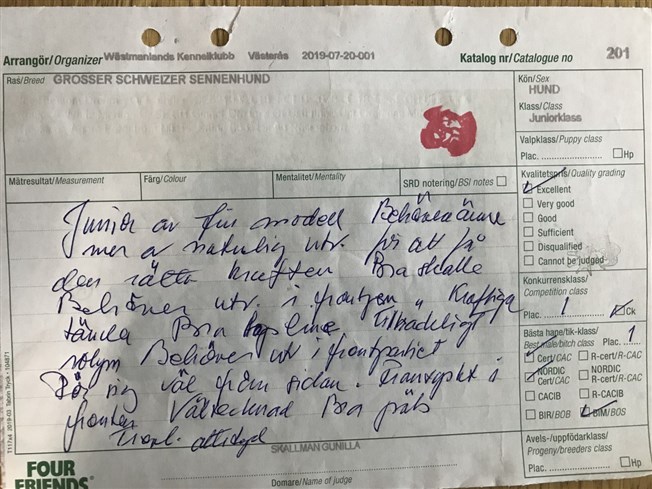 Arrangör/Organizer Wästmanlands Kennelklubb Västerås 2019-07-20-001 Katalog nr/Catalogue no 201
Ras/Breed GROSSER SCHWEIZER SENNENHUND
Kön/Sex
HUND
Klass/Class
Juniorklass
Valpklass/Puppy class
Plac. Hp
Mätresultat/Measurement Färg/Colour Mentalitet/Mentality SRD notering/BSI notes
Kvalitetspris/Quality grading
Excellent
Very good
Good
Sufficient
Disqualified
Cannot be judged
Konkurrensklass/
Competition class
Plac. 1 Ck
Bästa hane/tik-klass/
Best male/bitch class Plac. 1
Cert/CAC R-cert/R-CAC
NORDIC NORDIC
Cert/CAC R-cert/R-CAC
CACIB R-CACIB
BIR/BOB BIM/BOS
Avels-/uppfödarklass/
Progeny/breeders class
Plac. Hp
Junior av fin modell Behöver ännu
mer av naturlig utv. för att få
den rätta kraften Bra skalle
Behöver utv. i frontpen Kraftiga
tända Bra Tillräckligt
volym Behöver utv i frontpartiet
Rör sig väl från sidan. Trångspårt i
fronten Vältecknad Bra päls
Trevl. attityd
SKALLMAN GUNILLA
Domare/Name of judge
FOUR
FRIENDS
T117x4 2019-03 Tabbin Tryck • 104871